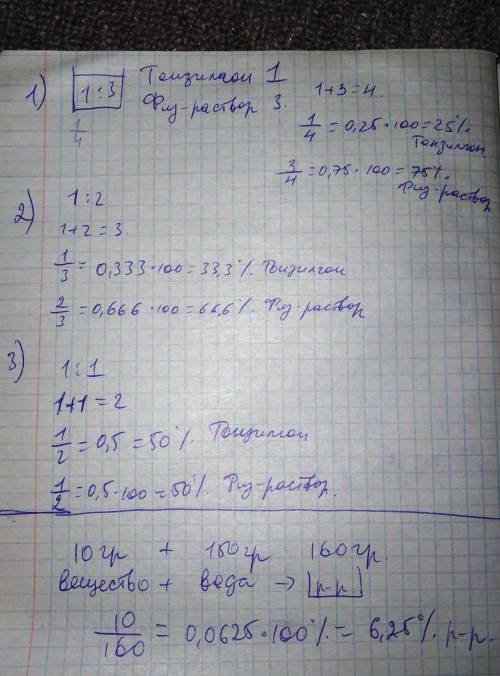 1) 1:3 Тонзилгон 1
Физ-раствор 3.
1/4
1+3=4
1/4 = 0,25·100=25%.
Тонзилгон
3/4 = 0,75·100=75%.
Физ-раствор
2) 1:2
1+2=3.
1/3 = 0,333·100=33,3%. Тонзилгон
2/3 = 0,666·100=66,6%. Физ-раствор
3) 1:1
1+1=2
1/2 = 0,5=50%. Тонзилгон
1/2 = 0,5·100=50%. Физ-раствор.
10гр + 150гр 160гр.
вещество + вода → р-р.
10/160 = 0,0625·100%= 6,25% р-р.